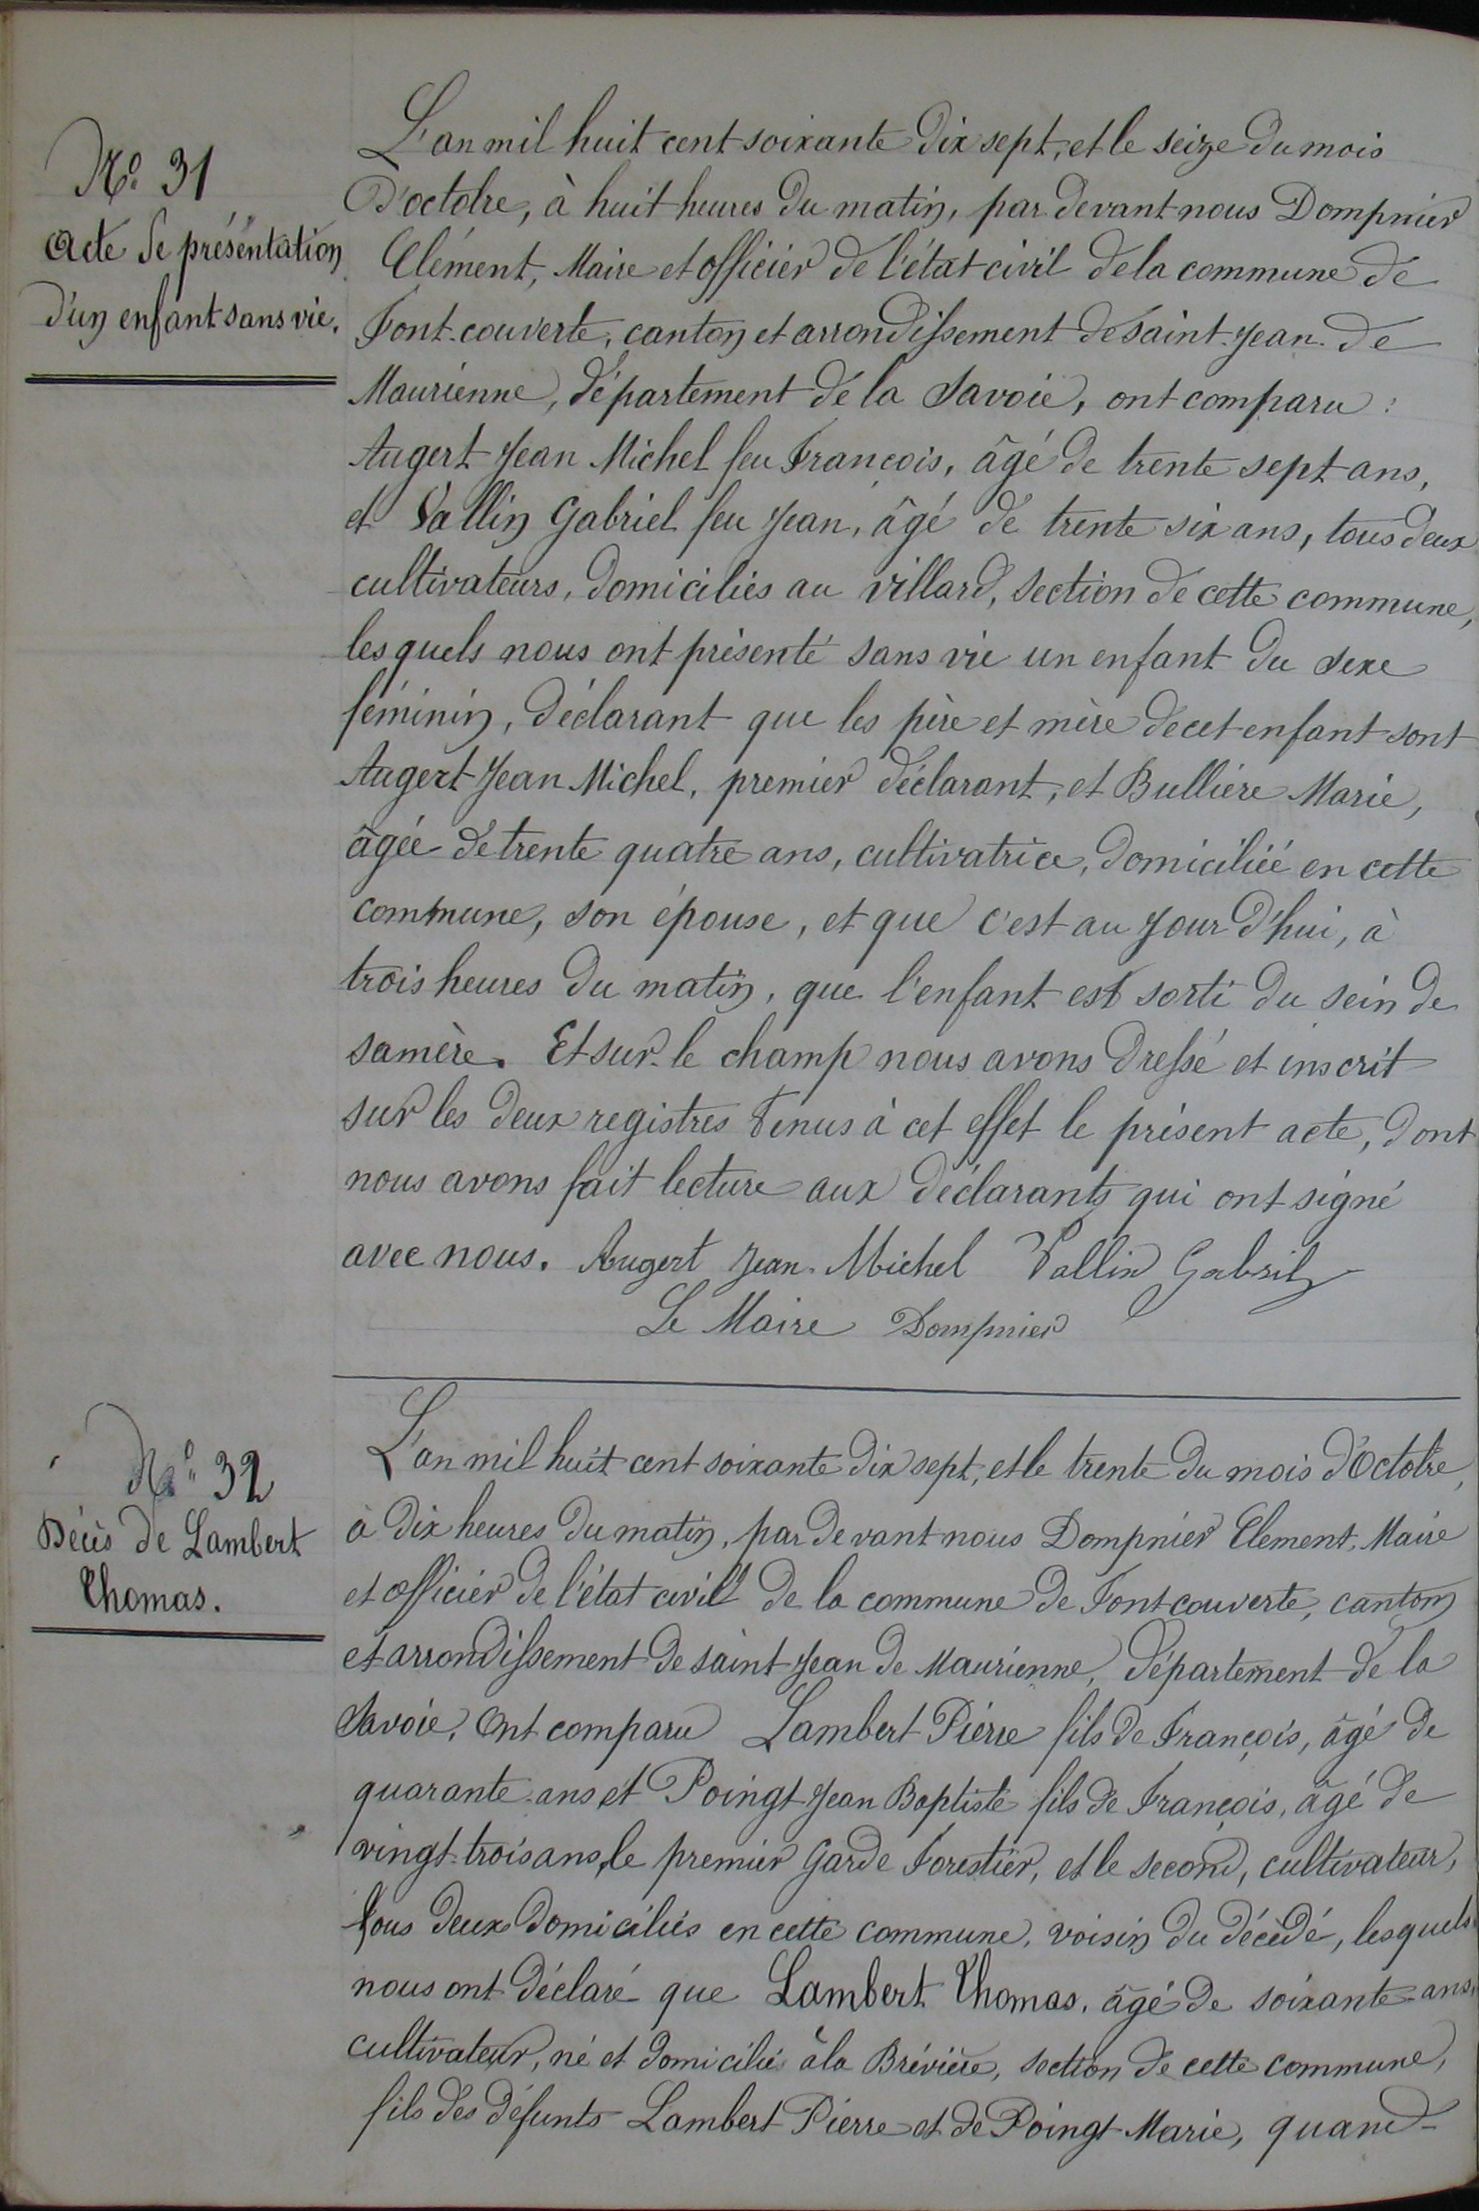 N° 31
Acte de présentation
d'un enfant sans vie.
L'an mil huit cent soixante dix sept, et le seize du mois
d'octobre, à huit heures du matin, par devant nous Dompnier
Clément, Maire et officier de l'état civil de la commune de
Font-couverte, canton et arrondissement de saint-Jean-de
Maurienne, département de la Savoie, ont comparu :
Augert Jean Michel feu François, âgé de trente sept ans,
et Vallin Gabriel feu Jean, âgé de trente six ans, tous deux
cultivateurs, domiciliés au villard, section de cette commune,
lesquels nous ont présenté sans vie un enfant du sexe
féminin, déclarant que les père et mère de cet enfant sont
Augert Jean Michel, premier déclarant, et Bullière Marie,
âgée de trente quatre ans, cultivatrice, domiciliée en cette
commune, son épouse, et que c'est au jour d'hui, à
trois heures du matin, que l'enfant est sorti du sein de
sa mère. Et sur-le champ nous avons dressé et inscrit
sur les deux registres tenus à cet effet le présent acte, dont
nous avons fait lecture aux déclarants qui ont signé
avec nous. Augert Jean-Michel Vallin Gabril
Le Maire Dompnier
N° 32
Décès de Lambert
Thomas.
L'an mil huit cent soixante dix sept, et le trente du mois d'Octobre,
à dix heures du matin, par devant nous Dompnier Clement, Maire
et officier de l'état civil de la commune de Fontcouverte, canton
et arrondissement de saint Jean de Maurienne, département de la
Savoie, Ont comparu Lambert Pierre fils de François, âgé de
quarante ans et Poingt Jean Baptiste fils de François, âgé de
vingt-trois ans, le premier Garde Forestier, et le second, cultivateur,
tous deux domiciliés en cette commune, voisin du décédé, lesquels
nous ont déclaré que Lambert Thomas, âgé de soixante ans,
cultivateur, né et domicilié à la Brévière, section de cette commune,
fils des défunts Lambert Pierre et de Poingt Marie, quand-